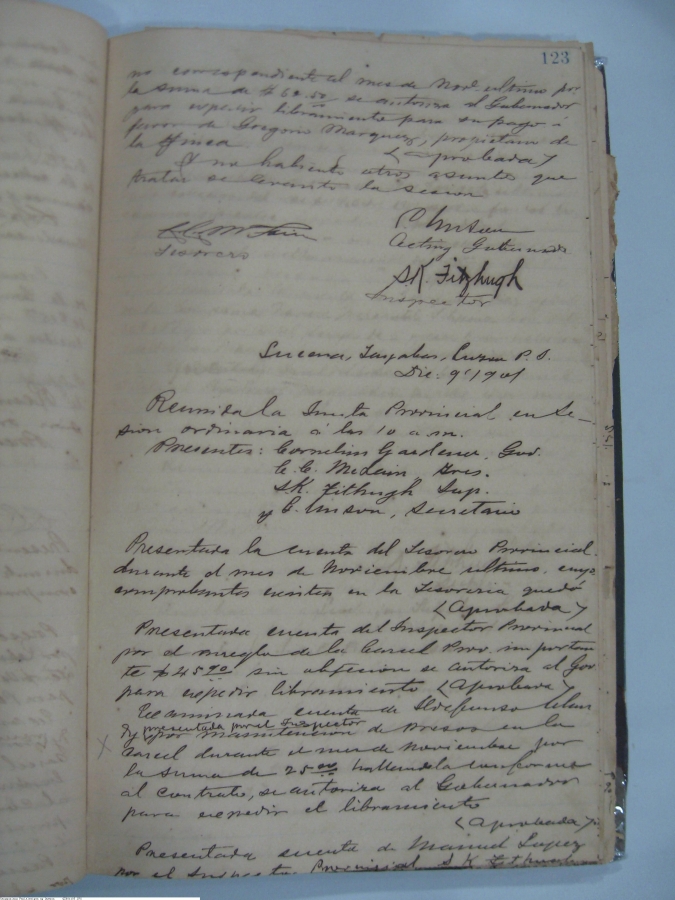 123
no correspondiente al mes de Nov. ultimo por
la suma de $ 68.50 se autoriza al Gobernador
para expedir libramiento para su pago á
favor de Gregorio Marquez, propietario de
la finca. (Aprobada)
Y no habiendo otros asuntos que
tratar se levantó la sesion
Tesorero
Acting Gobernador
S.K. Fitzhugh
Inspector
Lucena, Tayabas, Luzon P. I.
Dic. 9, 1901
Reunida la Junta Provincial en Se-
sion ordinaria á las 10 a.m.
Presentes: Cornelius Gardener, Gov.
C. C. McLain, Tres.
S.K. Fithugh Sup.
y C. Unson, Secretario
Presentada la cuenta del Tesorero Provincial.
durante el mes de Noviembre ultimo, cuyos
comprobantes en la Tesoreria quedó
(Aprobada)
Presentada cuenta del Inspector Provincial
por el arreglo de la Carcel Prov. importan
te $ 45.90 sin objecion se autoriza al Gov
para expedir libramiento (Aprobada)
Examinada cuenta de Ildefonso
y presentada por el Inspector
por manutencion de presos en la
Carcel durante el mes de Noviembre por
la suma de 25.00 hallandola conforme
al contrato, se autoriza al Gobernador
para expedir el libramiento
(Aprobada)
Presentada cuenta de Manuel Lopez
por el Inspector Provincial S K Fithugh